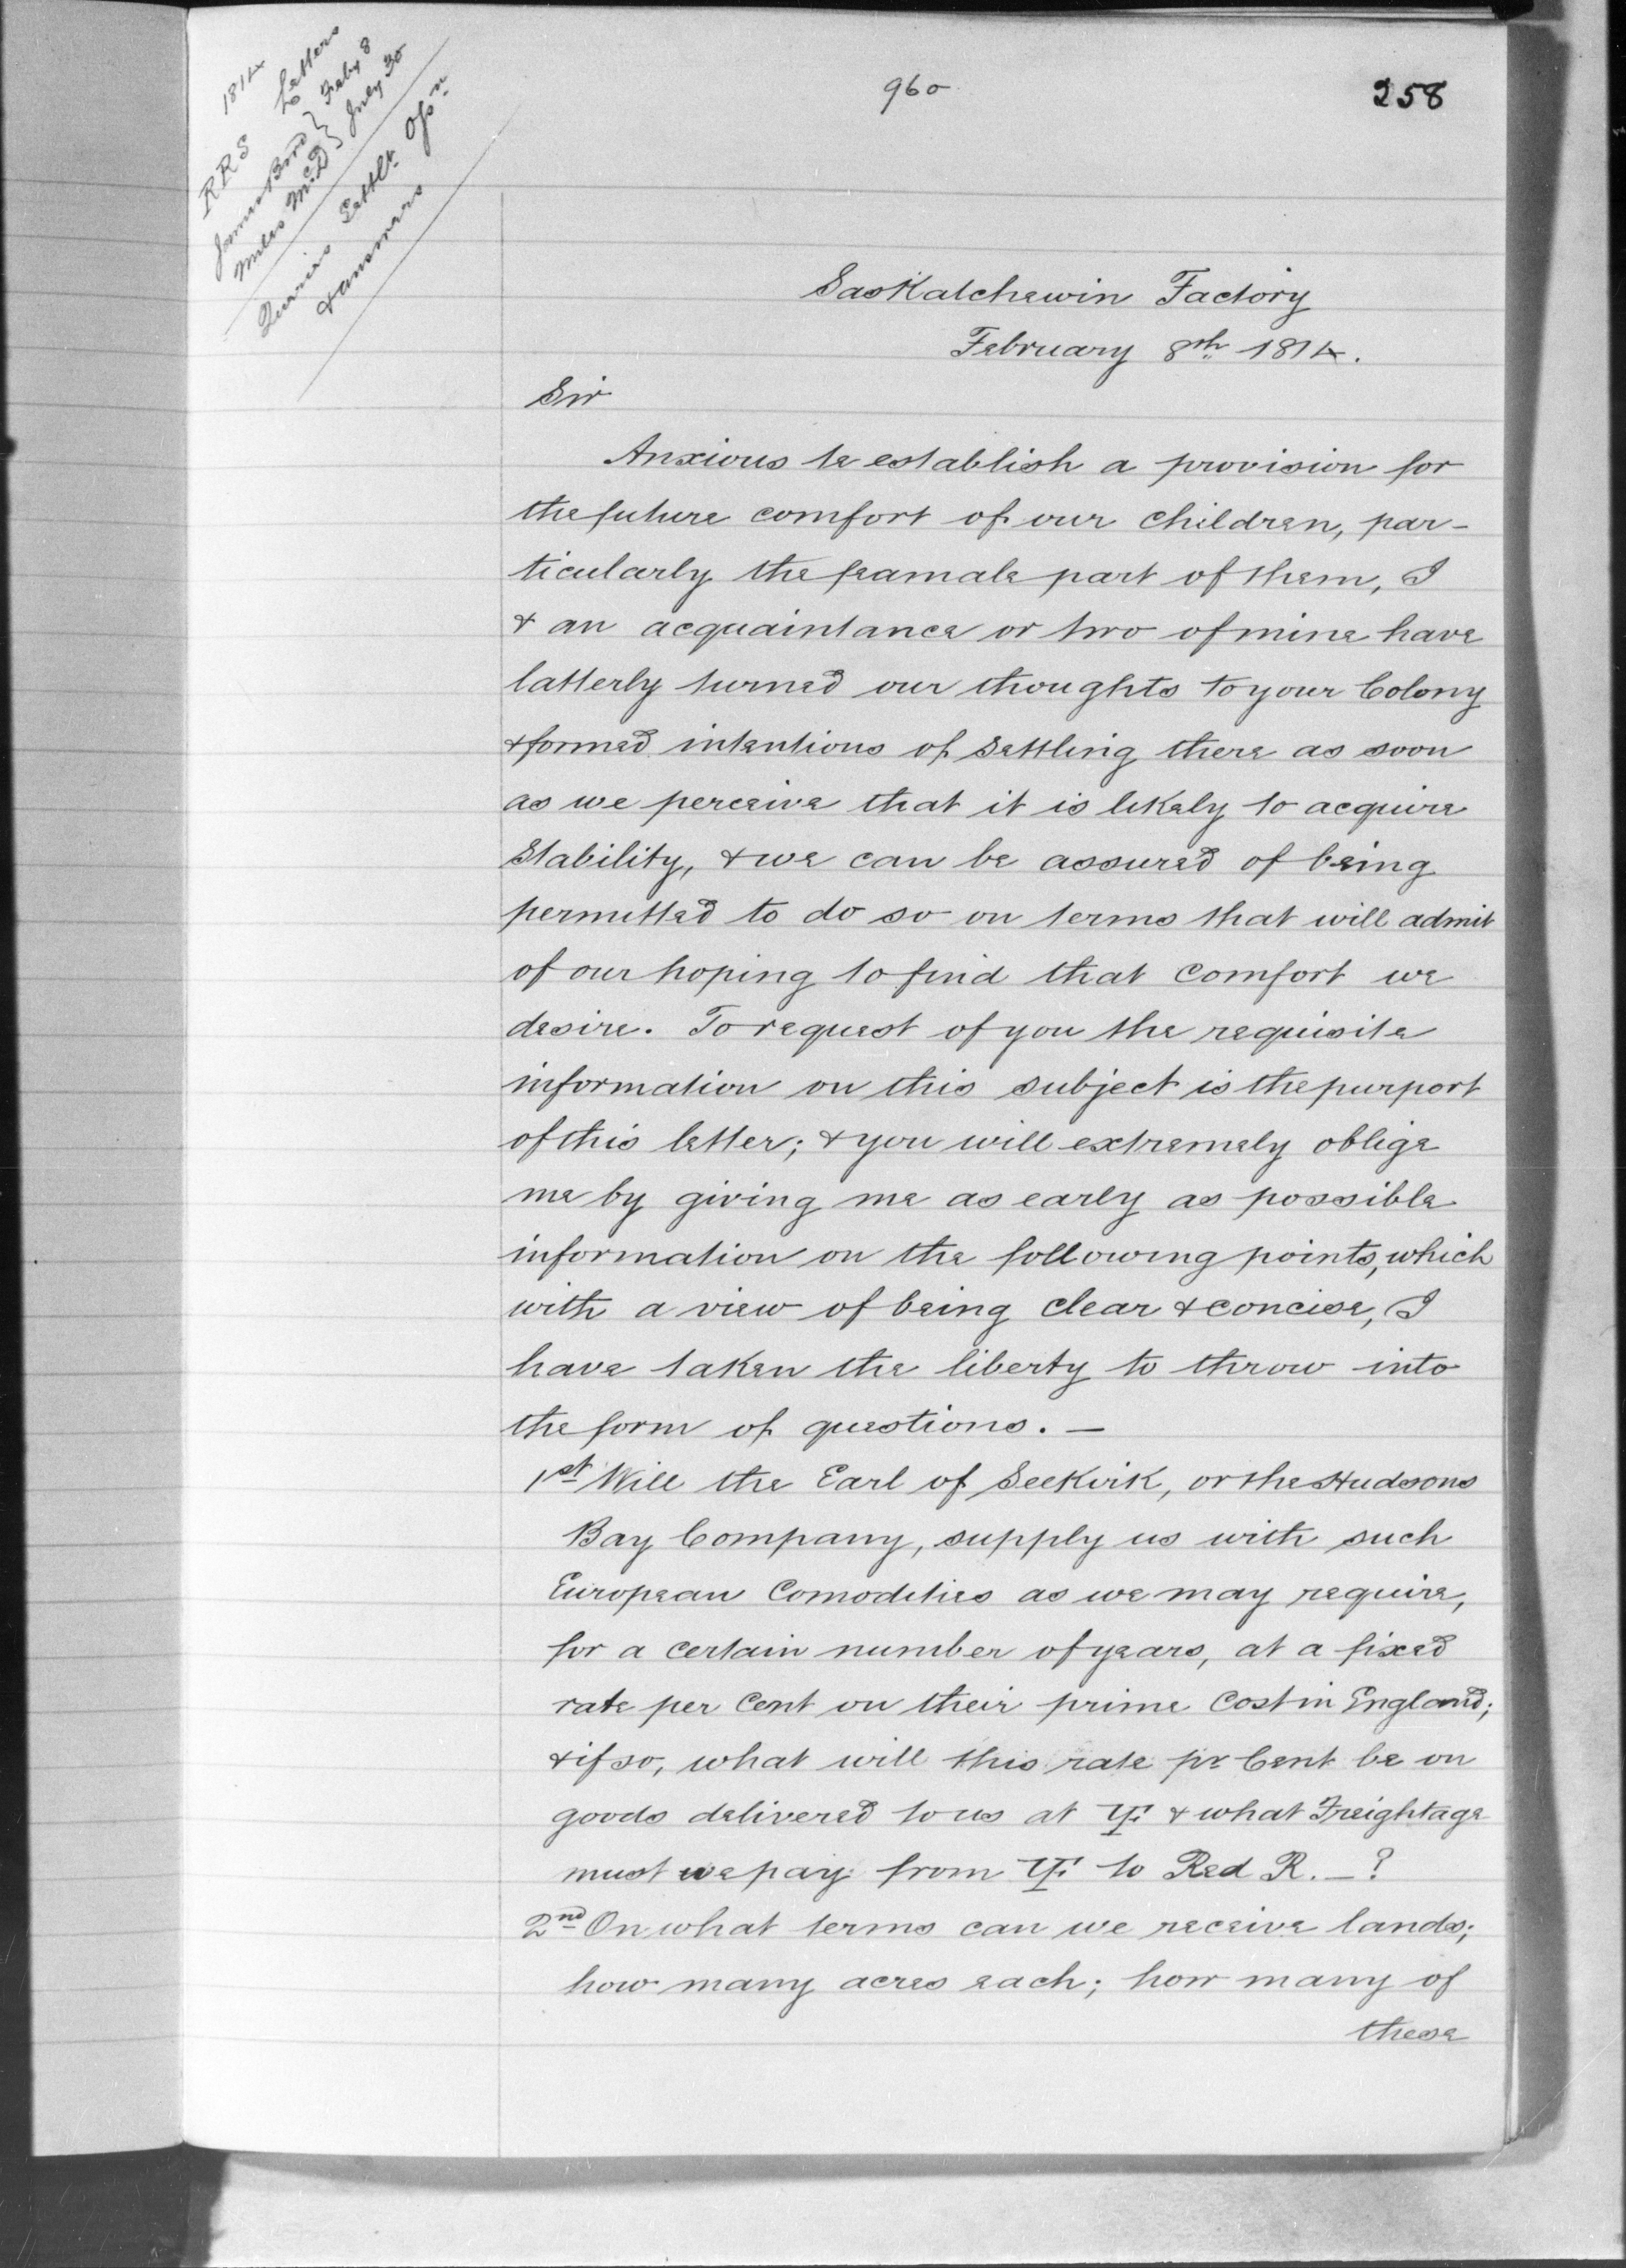 960
258
1814
RRS Letters
James Bird } Feby 8
Miles McD } July 30
Queries Settlt. Opn.
& answers
Saskatchewin Factory
February 8th 1814.
Sir
Anxious to establish a provision for
the future comfort of our children, par-
ticularly the feamale part of them, I
& an acquaintance or two of mine have
latterly turned our thoughts to your Colony
& formed intentions of settling there as soon
as we perceive that it is likely to acquire
Stability, & we can be assured of being
permitted to do so on terms that will admit
of our hoping to find that comfort we
desire. To request of you the requisite
information on this subject is the purport
of this letter; & you will extremely oblige
me by giving me as early as possible
information on the following points, which
with a view of being clear & concise, I
have taken the liberty to throw into
the form of questions. —
1st Will the Earl of Selkirk, or the Hudsons
Bay Company, supply us with such
European Comodities as we may require,
for a certain number of years, at a fixed
rate per Cent on their prime Cost in England;
& if so, what will this rate pr Cent be on
goods delivered to us at YF & what Freightage
must we pay from YF to Red R. — ?
2nd On what terms can we receive lands;
how many acres each; how many of
these